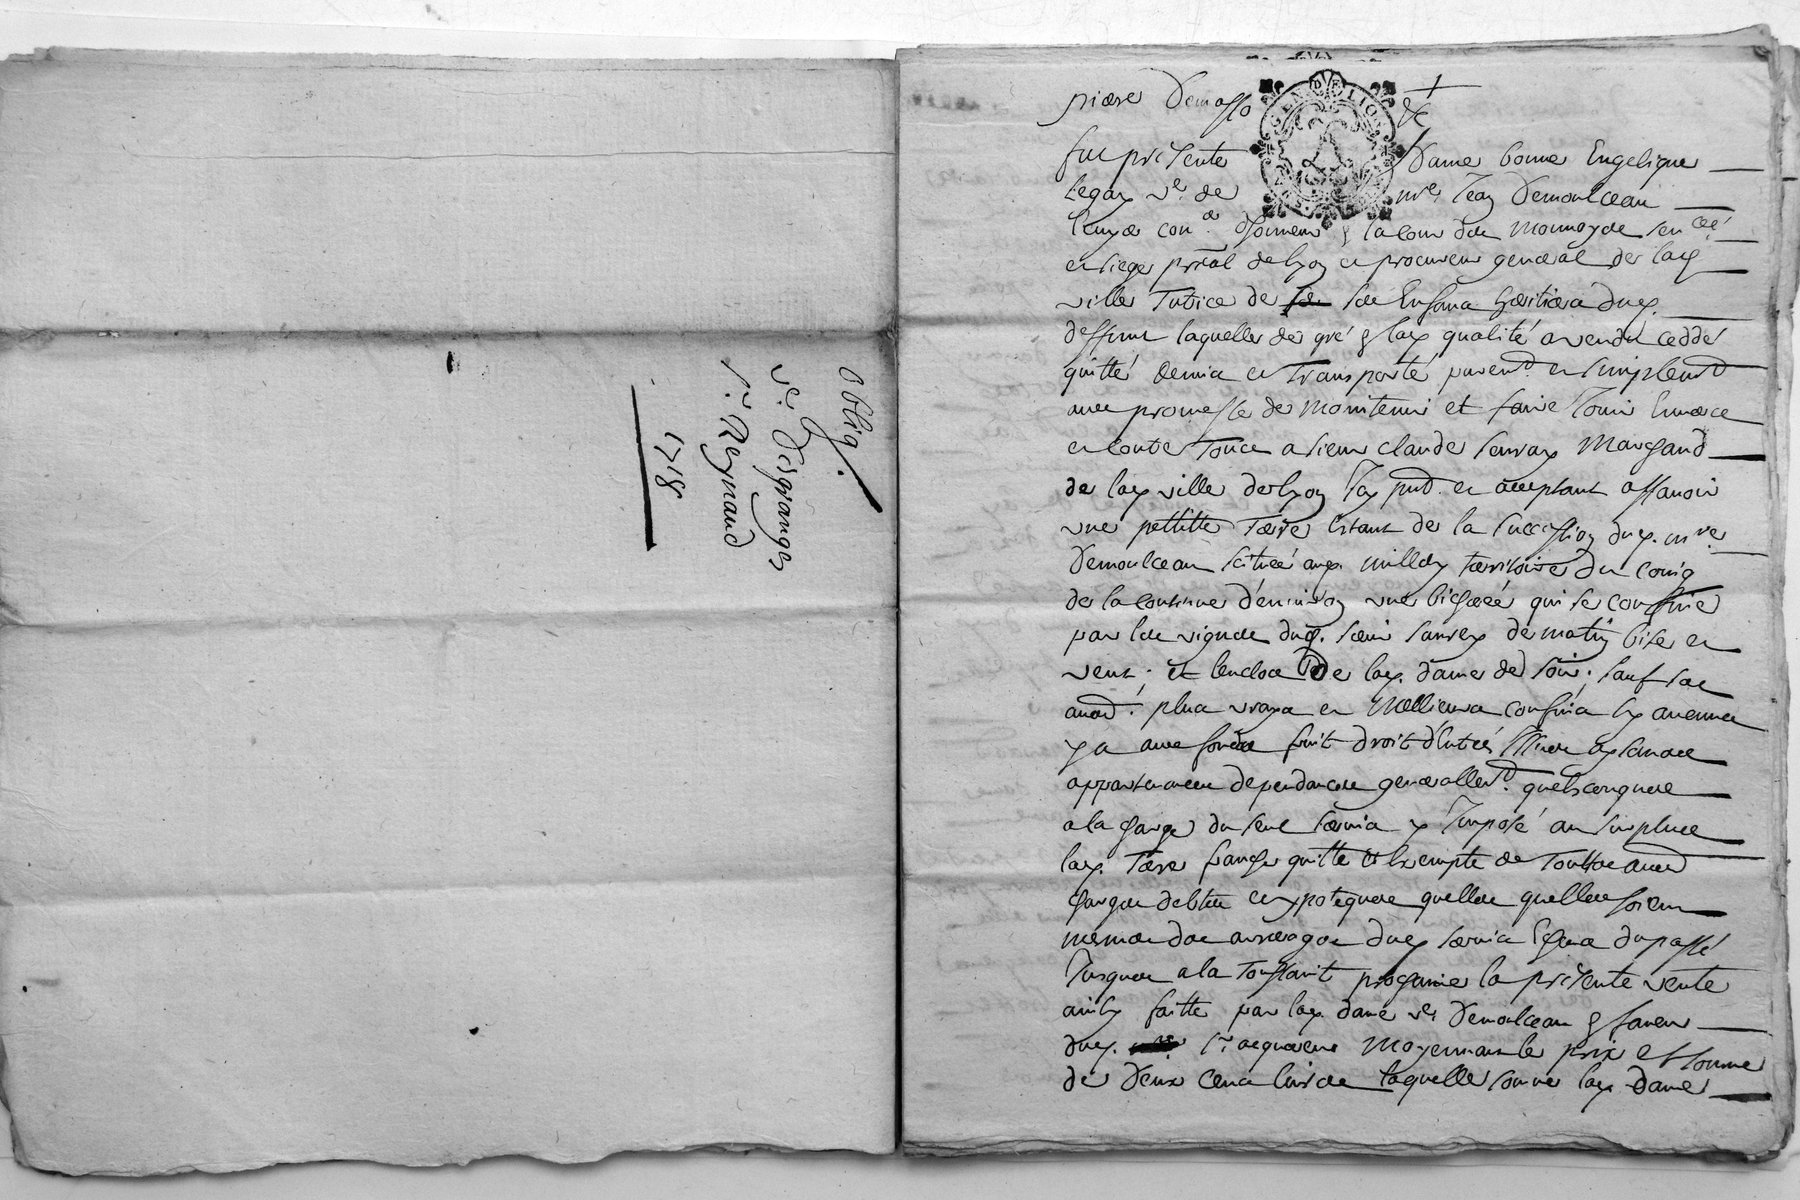 oblig.
ve. Desgranges
sr. Reynaud
1718
GEN DE LION
fut presente Dame bonne Engelique
legay ve. de mre. Jean Demoulceau
d'honneur la cour des monnoyes senécée
et siege prial de lyon et procureur general de lad
ville Tutrice de ses Enfans heritiers dud.
deffunt laquelle de gré lad qualité a vendu ceddé
quitté remis et Transporté puremt. et simplemt
avec promesse de maintenir et faire Jouir Envers
et contre Tous a sieur claude Marchand
de lad ville de lyon Icy pnt. et acceptant assavoir
une pettitte Terre Estant de la succession dud. mre.
Demoulceau scituée aux territoire du
de la contenue d'environ une bicherée qui se confine
par les vignes dud. sieur de matin bise et
vent. et lenclos De lad. dame de soir. sauf ses
autres plus vrays et Meilleurs confins sy aucuns
y a avec fonds fruit droit d'Entrée
appartenances dependances generallemt. quelsconques
a la charge du seul servis y Imposé au surplus
lad. Terre franche quitte et Exempte de Touttes autres
charges debtes et ypoteques quelles quelles soient
mesmes des arrerages dud servis Echus du passé
Jusques a la Toussaint prochaine la presente vente
ainsy faitte par lad. dame ve. Demoulceau faveur
dud. sr. acquereur Moyennant le prix et somme
de Deux Cens livres laquelle somme lad. dame